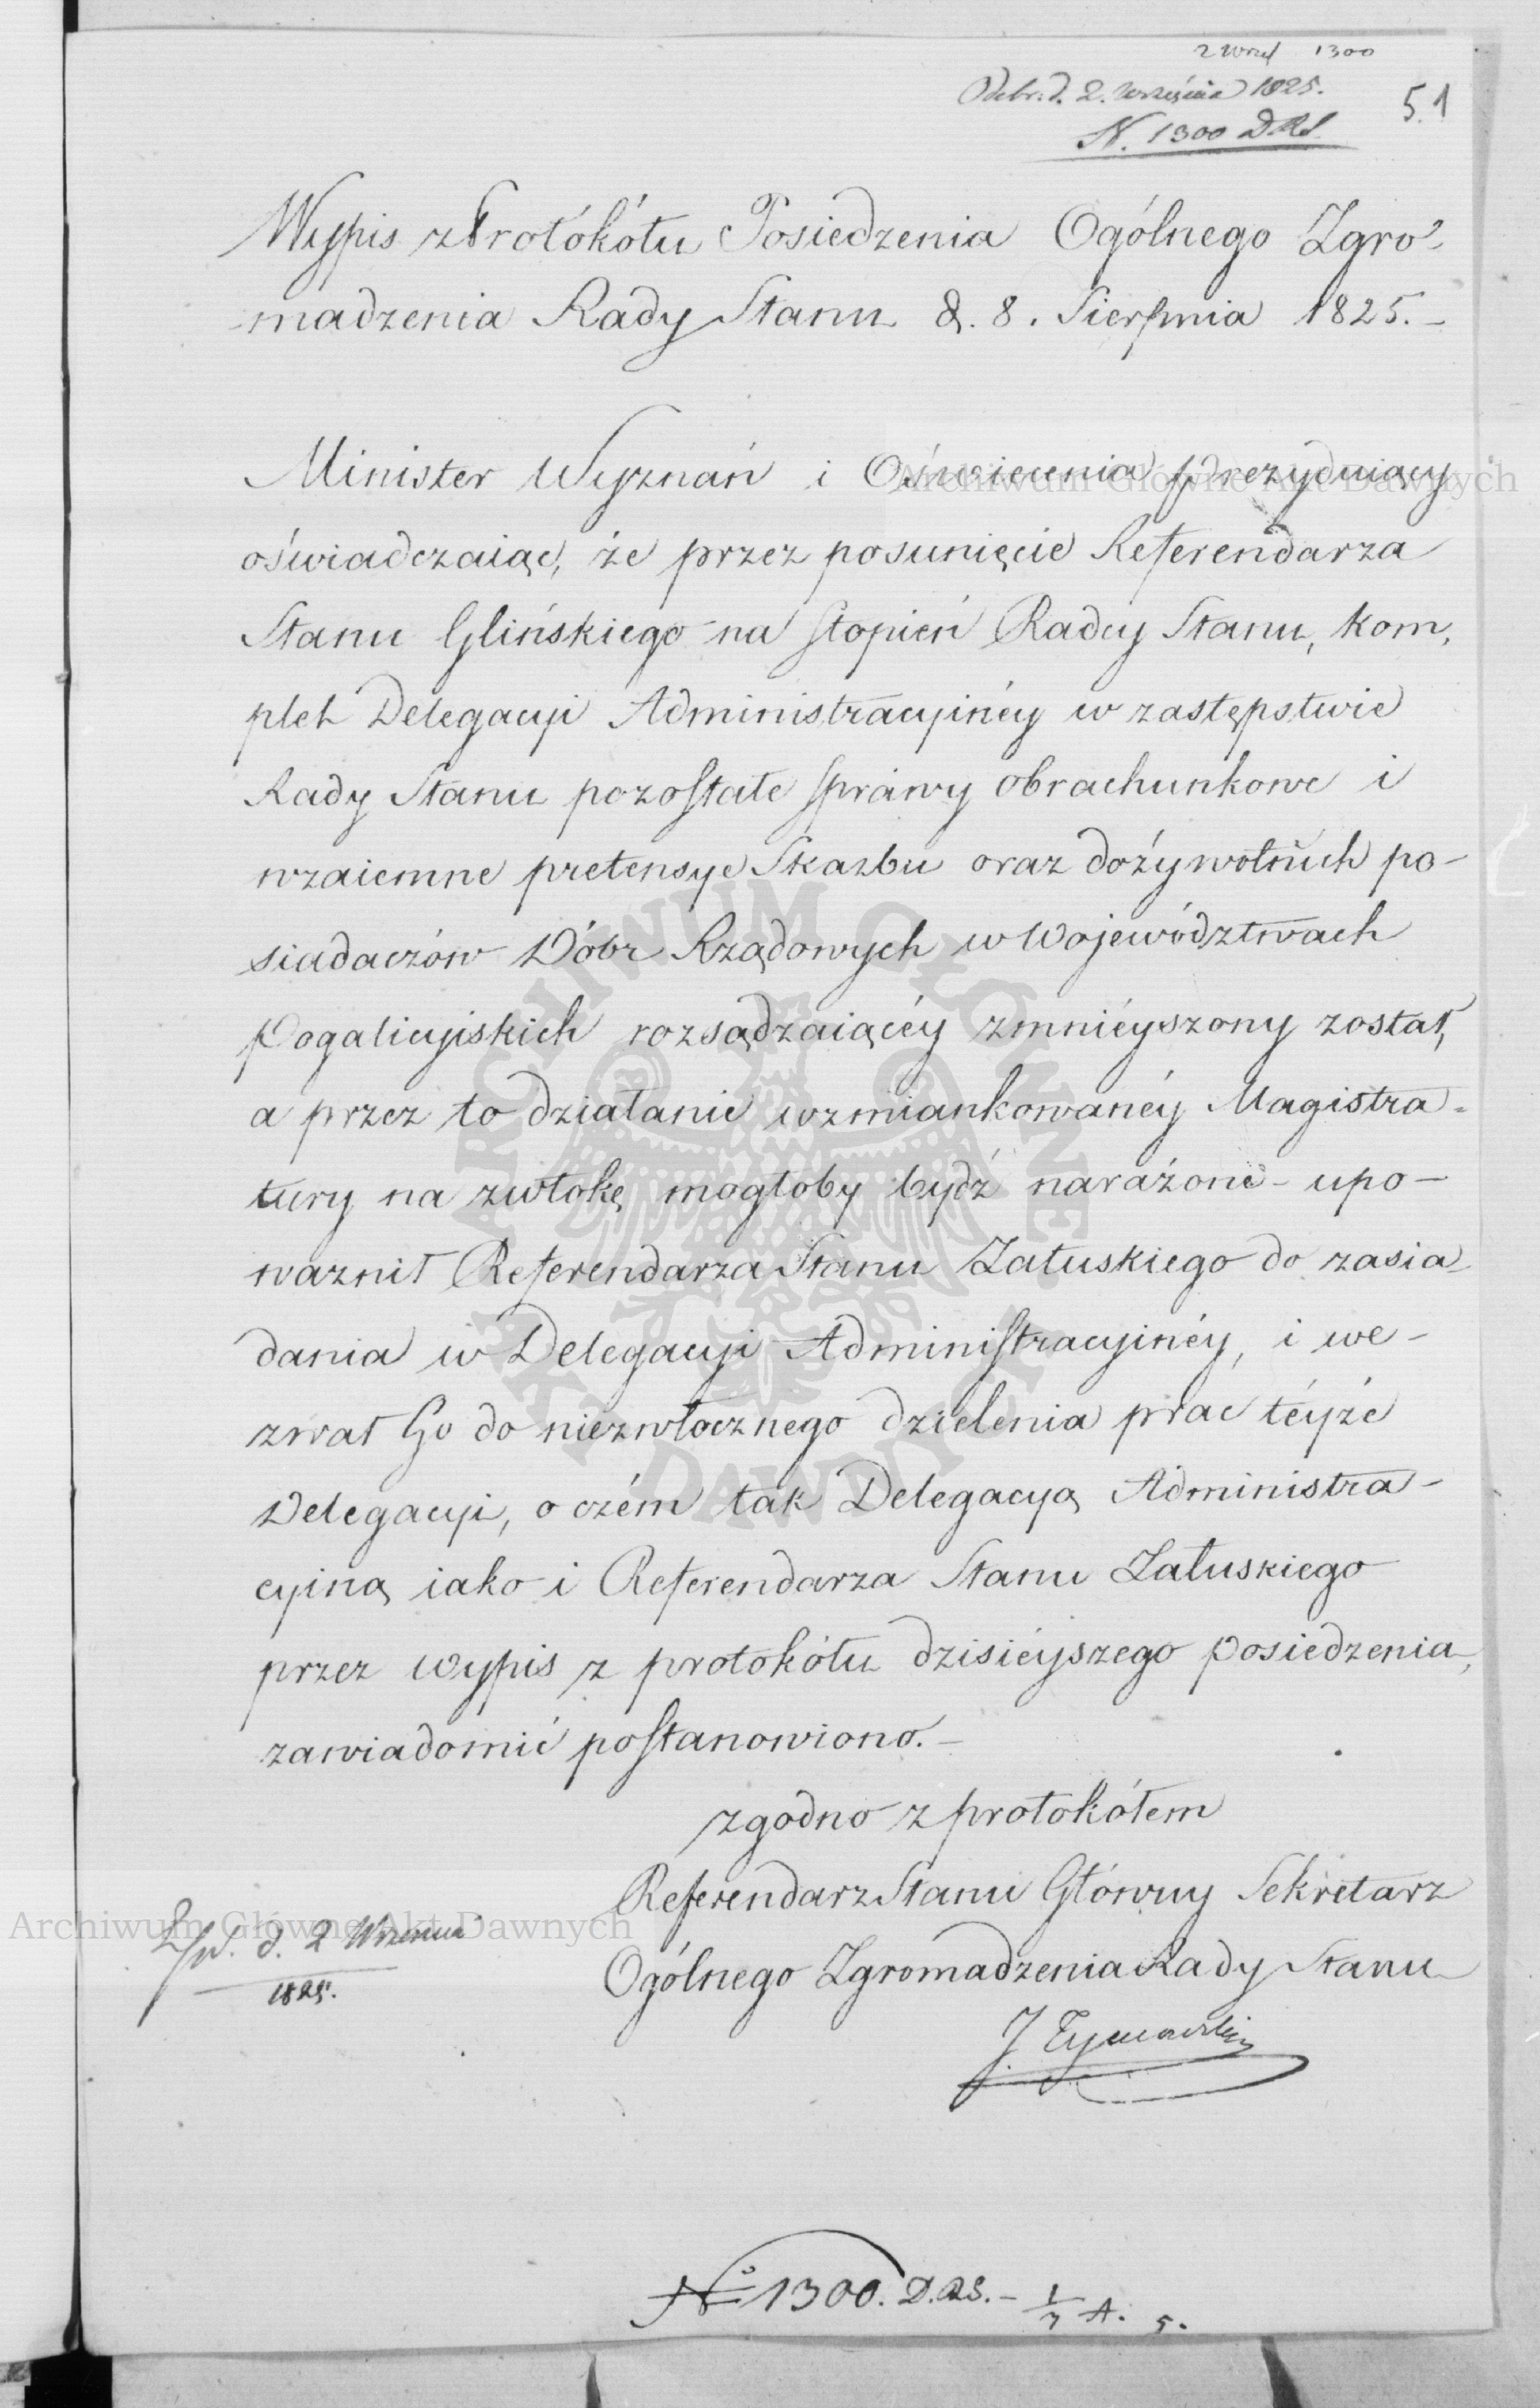 2 Wrześ 1300
Odebr. d. 2. Września 1825.
N. 1300 DRS
51
Wypis z Protókółu Posiedzenia Ogólnego Zgro-
-madzenia Rady Stanu d. 8. Sierpnia 1825.-
Minister Wyznań i Oświecenia prezyduiący
oświadczaiąc, że przez posunięcie Referendarza
Stanu Glińskiego na stopień Radcy Stanu, kom,
plet Delegacyi Administracyinéy w zastępstwie
Rady Stanu pozostałe sprawy obrachunkowe i
wzaiemne pretensye Skarbu oraz dożywotnich po-
siadaczów Dóbr Rządowych w Województwach
Pogalicyiskich rozsądzaiącéy zmniéyszony został,
a przez to działanie wzmiankowanéy Magistra-
tury na zwłokę mogłoby bydź narażone - upo-
ważnił Referendarza Stanu Załuskiego do zasia-
dania w Delegacyi Administracyinéy, i we-
zwał Go do niezwłocznego dzielenia prac téyże
Delegacyi, o czém tak Delegacyą Administra-
cyiną iako i Referendarza Stanu Załuskiego
przez wypis z protokółu dzisiéyszego posiedzenia,
zawiadomić postanowiono.-
zgodno z protokółem
Referendarz Stanu Główny Sekretarz
Ogólnego Zgromadzenia Rady Stanu
J Tymowski
d. 2 Września
1825.
No 1300. D.RS. - 1/7 A. 5.
Archiwum Główne Akt Dawnych
Archiwum Główne Akt Dawnych
ARCHIWUM GŁÓWNE AKT DAWNYCH